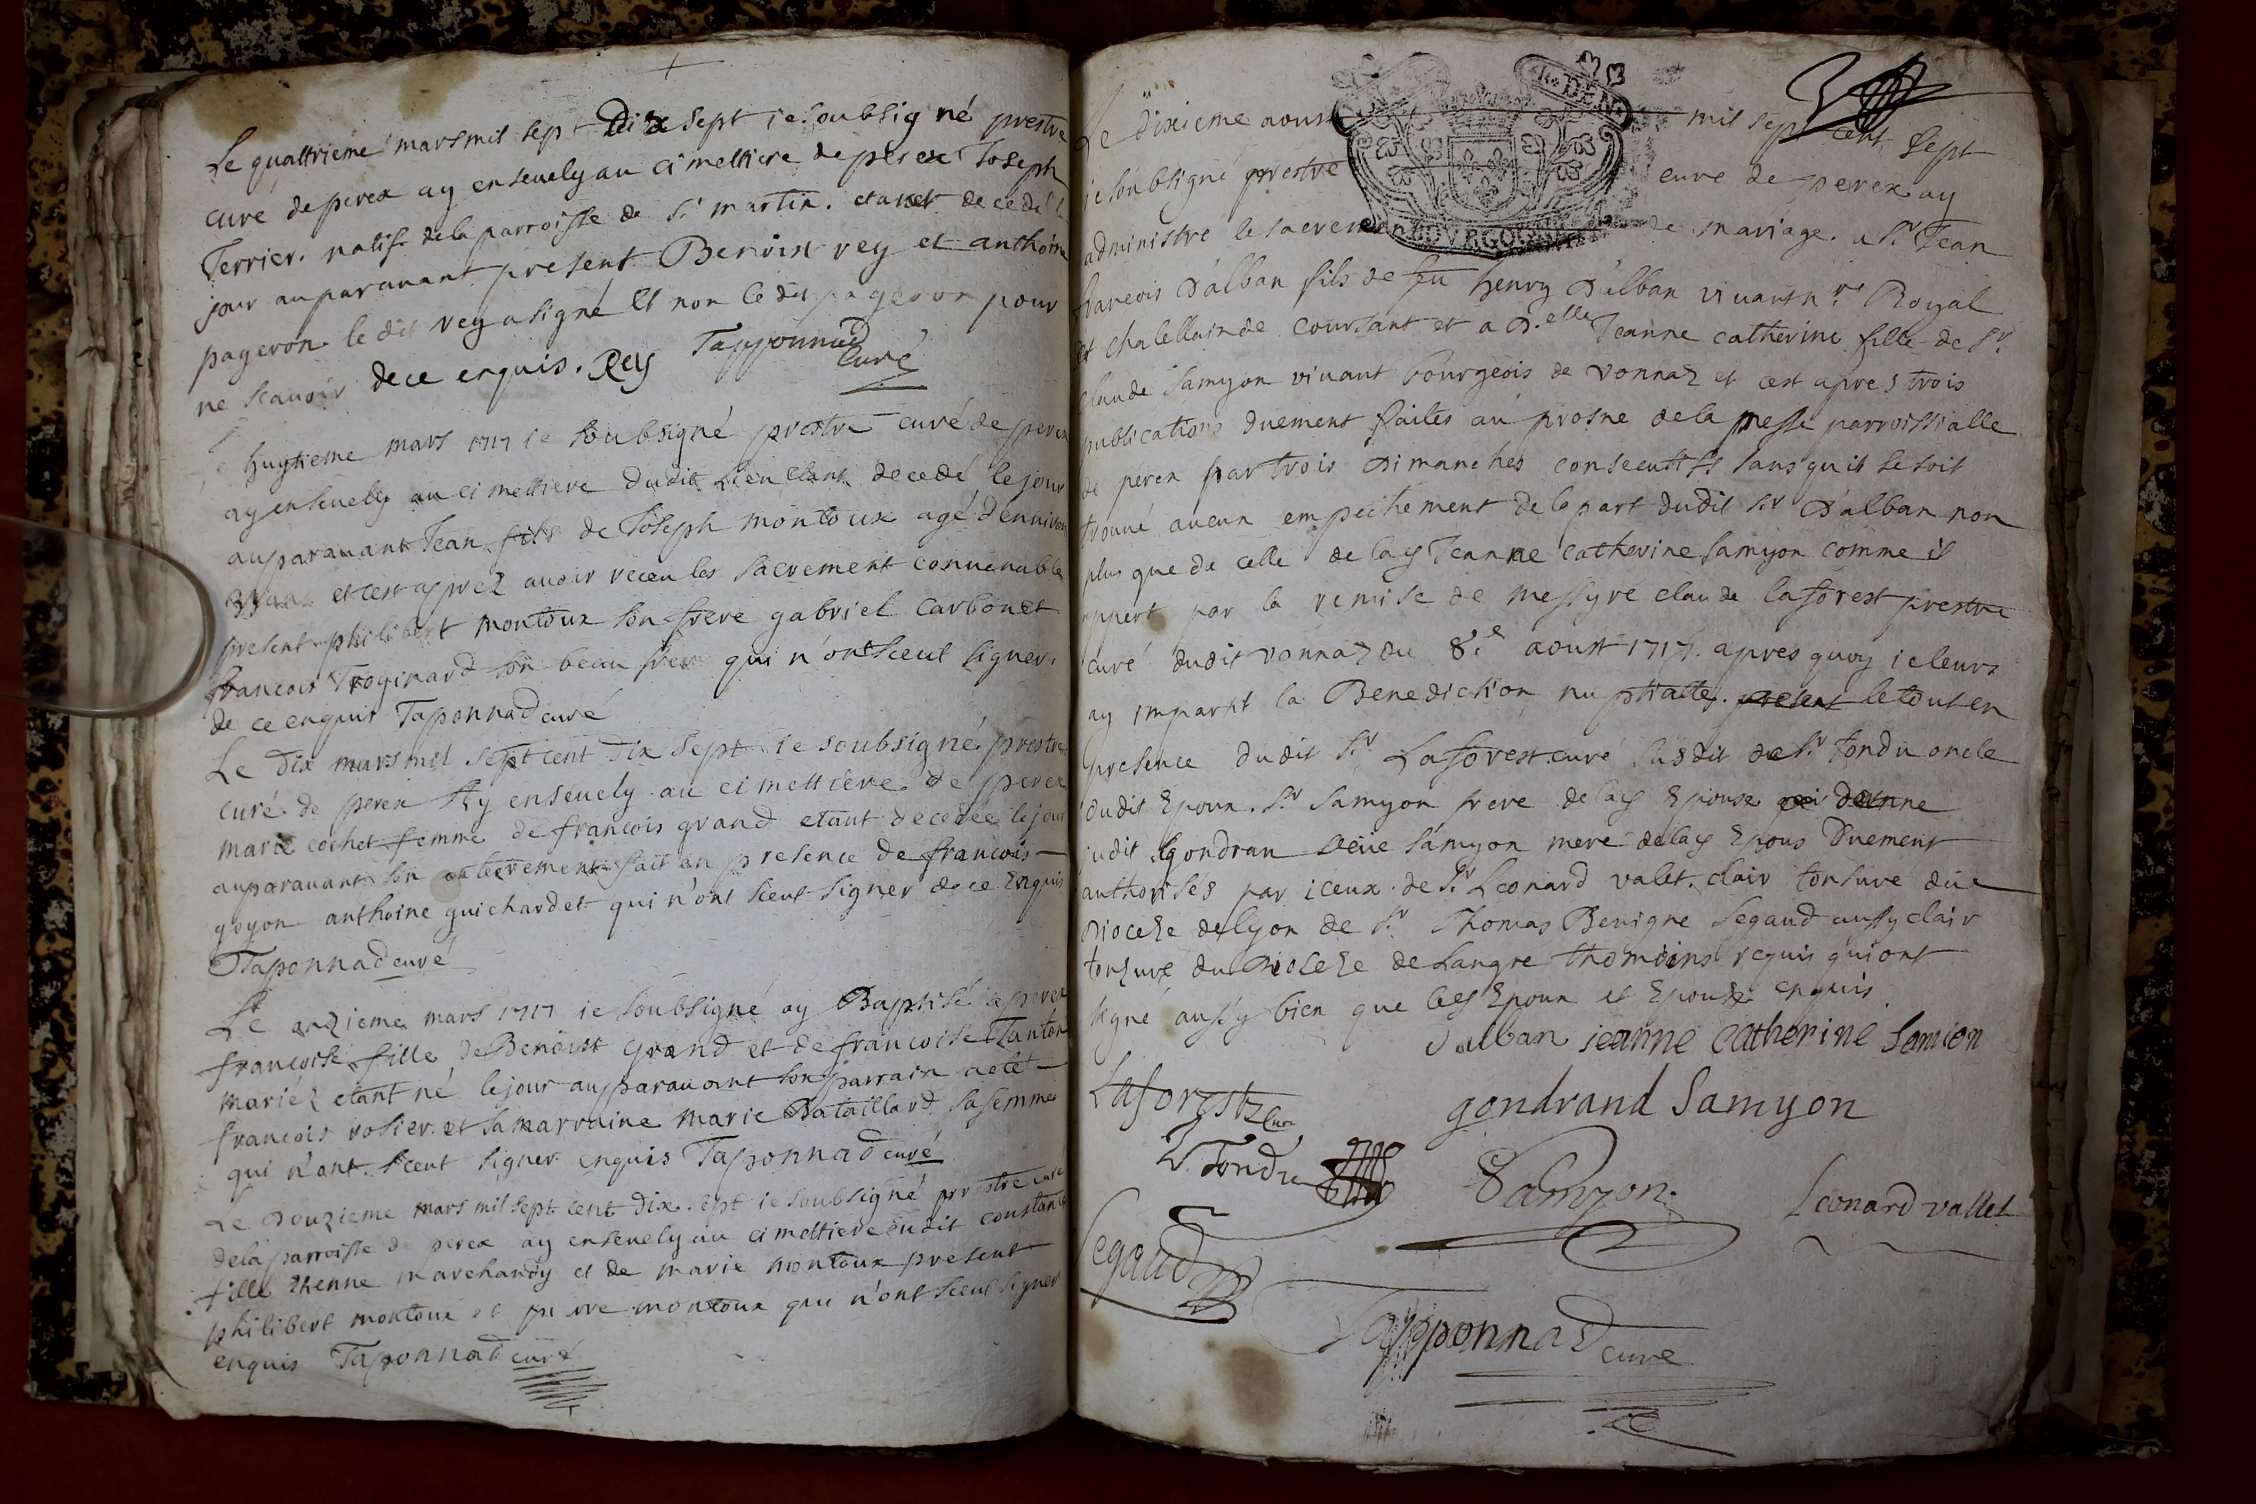 Le quattrieme mars mil sept dix sept ie soubsigné prestre
curé de perex ay enseuely au cimettiere de perex Joseph
Terrier. natif de la parroisse de St martin. etant decedé le
jour auparauant present Benoist rey et anthoine
pageron. le dit rey a signé Et non le dit pageron pour
ne scauoir de ce enquis. Rey Tapponnad
Curé
huytieme mars 1717 ie soubsigné prestre curé de perex
ay enseuely au cimettiere dudit lieu etant decedé le jour
auparauant Jean fils de Joseph montoux agé d'enuiron
et cest aprez auoir receu les sacrement conuenable
present philibert montoux son frere gabriel carbonet
francois Troginard son beau frere qui n'ont sceut signer.
de ce enquis Taponnad curé
Le dix mars mil sept cent dix sept ie soubsigné prestre
curé de perex Ay enseuely au cimettiere de perex
marie cochet femme de francois grand etant decedée le jour
auparauant son enterrement fait en presence de francois
goyon anthoine guichardet qui n'ont sceut signer de ce Enquis
Taponnad curé
Le onzieme mars 1717 ie soubsigné ay Baptisé a perex
francoise fille de Benoist Grand et de francoise Tanton
mariéz etant né le jour auparauant son parrain a eté
francois rosier et sa marraine marie Bataillard sa femme
qui n'ont sceut signer enquis Taponnad curé
Le Douzieme mars mil sept cent dix sept ie soubsigné prestre curé
de la parroisse de perex ay enseuely au cimettiere dudit constance
fille Ettienne marchandy et de marie montoux present
philibert montoux et pierre montoux qui n'ont sceut signer
enquis Taponnad curé
Le dixieme aoust mil sept cent sept
ie soubsigné prestre curé de perex ay
administré le sacrement de mariage. a Sr Jean
francois D'alban fils de feu henry D'alban viuant nre Royal
et chatellain de Coursant et a D.elle Jeanne catherine fille de Sr.
claude Samyon viuant bourgeois de vonnaz et cest apres trois
publications duement faites au prosne de la messe parroissialle
de perex par trois Dimanches consecutifs sans quil se soit
trouué aucun empeichement de la part dudit Sr D'alban non
plus que de celle de lad Jeanne catherine Samyon comme il
appert par la remise de messyre claude laforest prestre
curé dudit vonnaz du 8.e aoust 1717. apres quoy ie leurs
ay imparti la Benediction nuptialle. present le tout en
presence dudit Sr Laforest curé susdit de Sr tondu oncle
dudit Epoux. Sr Samyon frere de lad Epouse
gondran veue samyon mere de lad Epous Duement
authorisés par iceux. de Sr Leonard valet. clair tonsuré du
Dioceze de lyon de Sr Thomas Benigne Segaud aussy clair
tonsuré du Dioceze de Langre thomoins requis qui ont
signé aussy bien que les Epoux et Epouse enquis.
Dalban jeanne catherine Samion
Laforest Curé
gondrand Samyon
Tondu
Samyon
Leonard vallet
Segaud
Tapponnad
curé